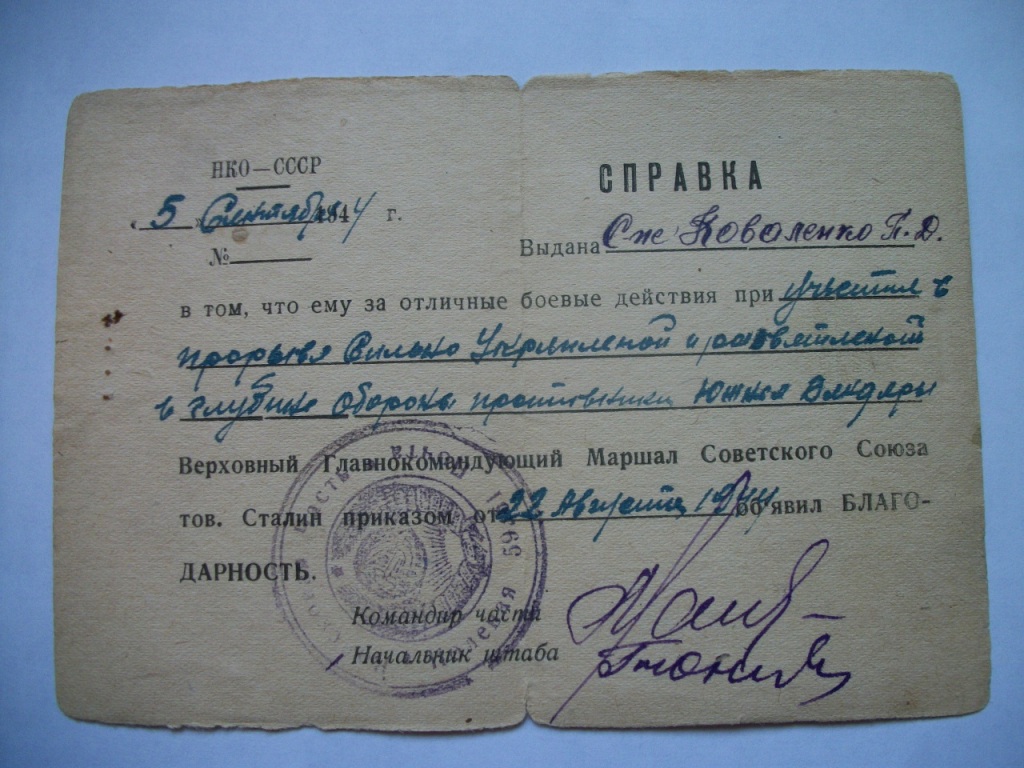 НКО—СССР
СПРАВКА
« 5 » Сентября 1944 г.
№
Выдана С-не Коваленко П. Д.
в том, что ему за отличные боевые действия при участии в
прорыве Сильно Укрепленой и
в глубине Обороны противника Южнея Бендеры
Верховный Главнокомандующий Маршал Советского Союза
тов. Сталин приказом от 22 Августа 1944 об'явил БЛАГО-
ДАРНОСТЬ.
Командир части
Начальник штаба